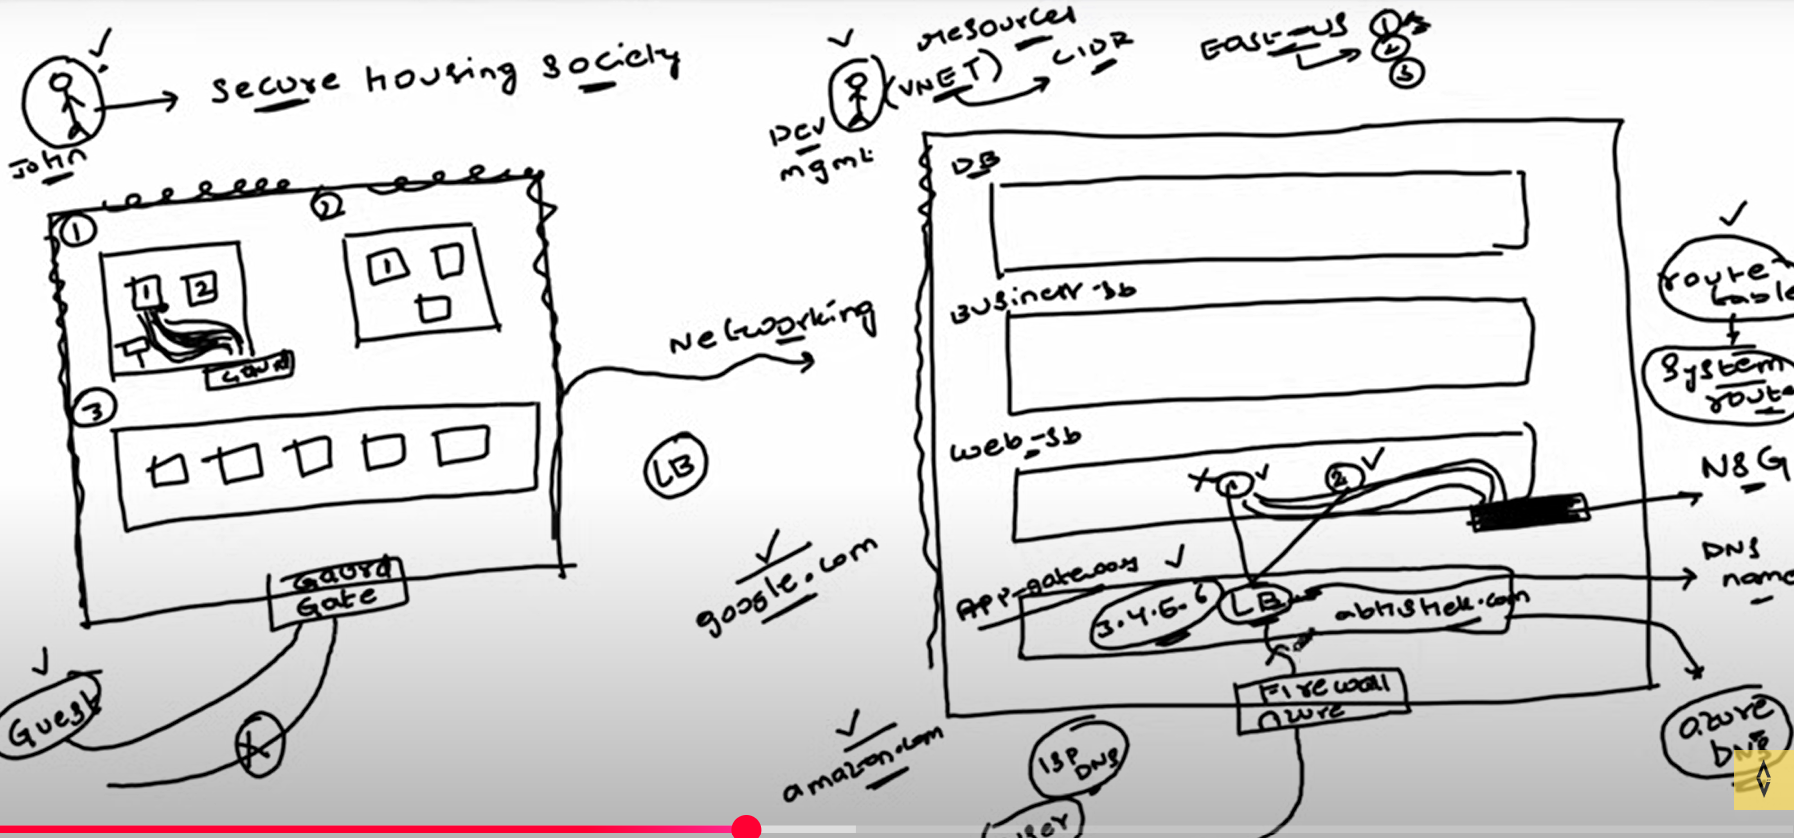 John
Secure Housing Society
1
2
1
2
Gaurd
1
3
Gaurd
Gate
Guest
Networking
LB
google.com
amazon.com
resources
(VNET)
CIDR
East-US
1
2
3
Dev
mgmt
DB
Business-sb
Web-sb
1
2
App-gateway
3.4.5.6
LB
abhishek.com
Firewall
Azure
ISP
DNS
user
route
table
System
route
NSG
DNS
name
azure
DNS